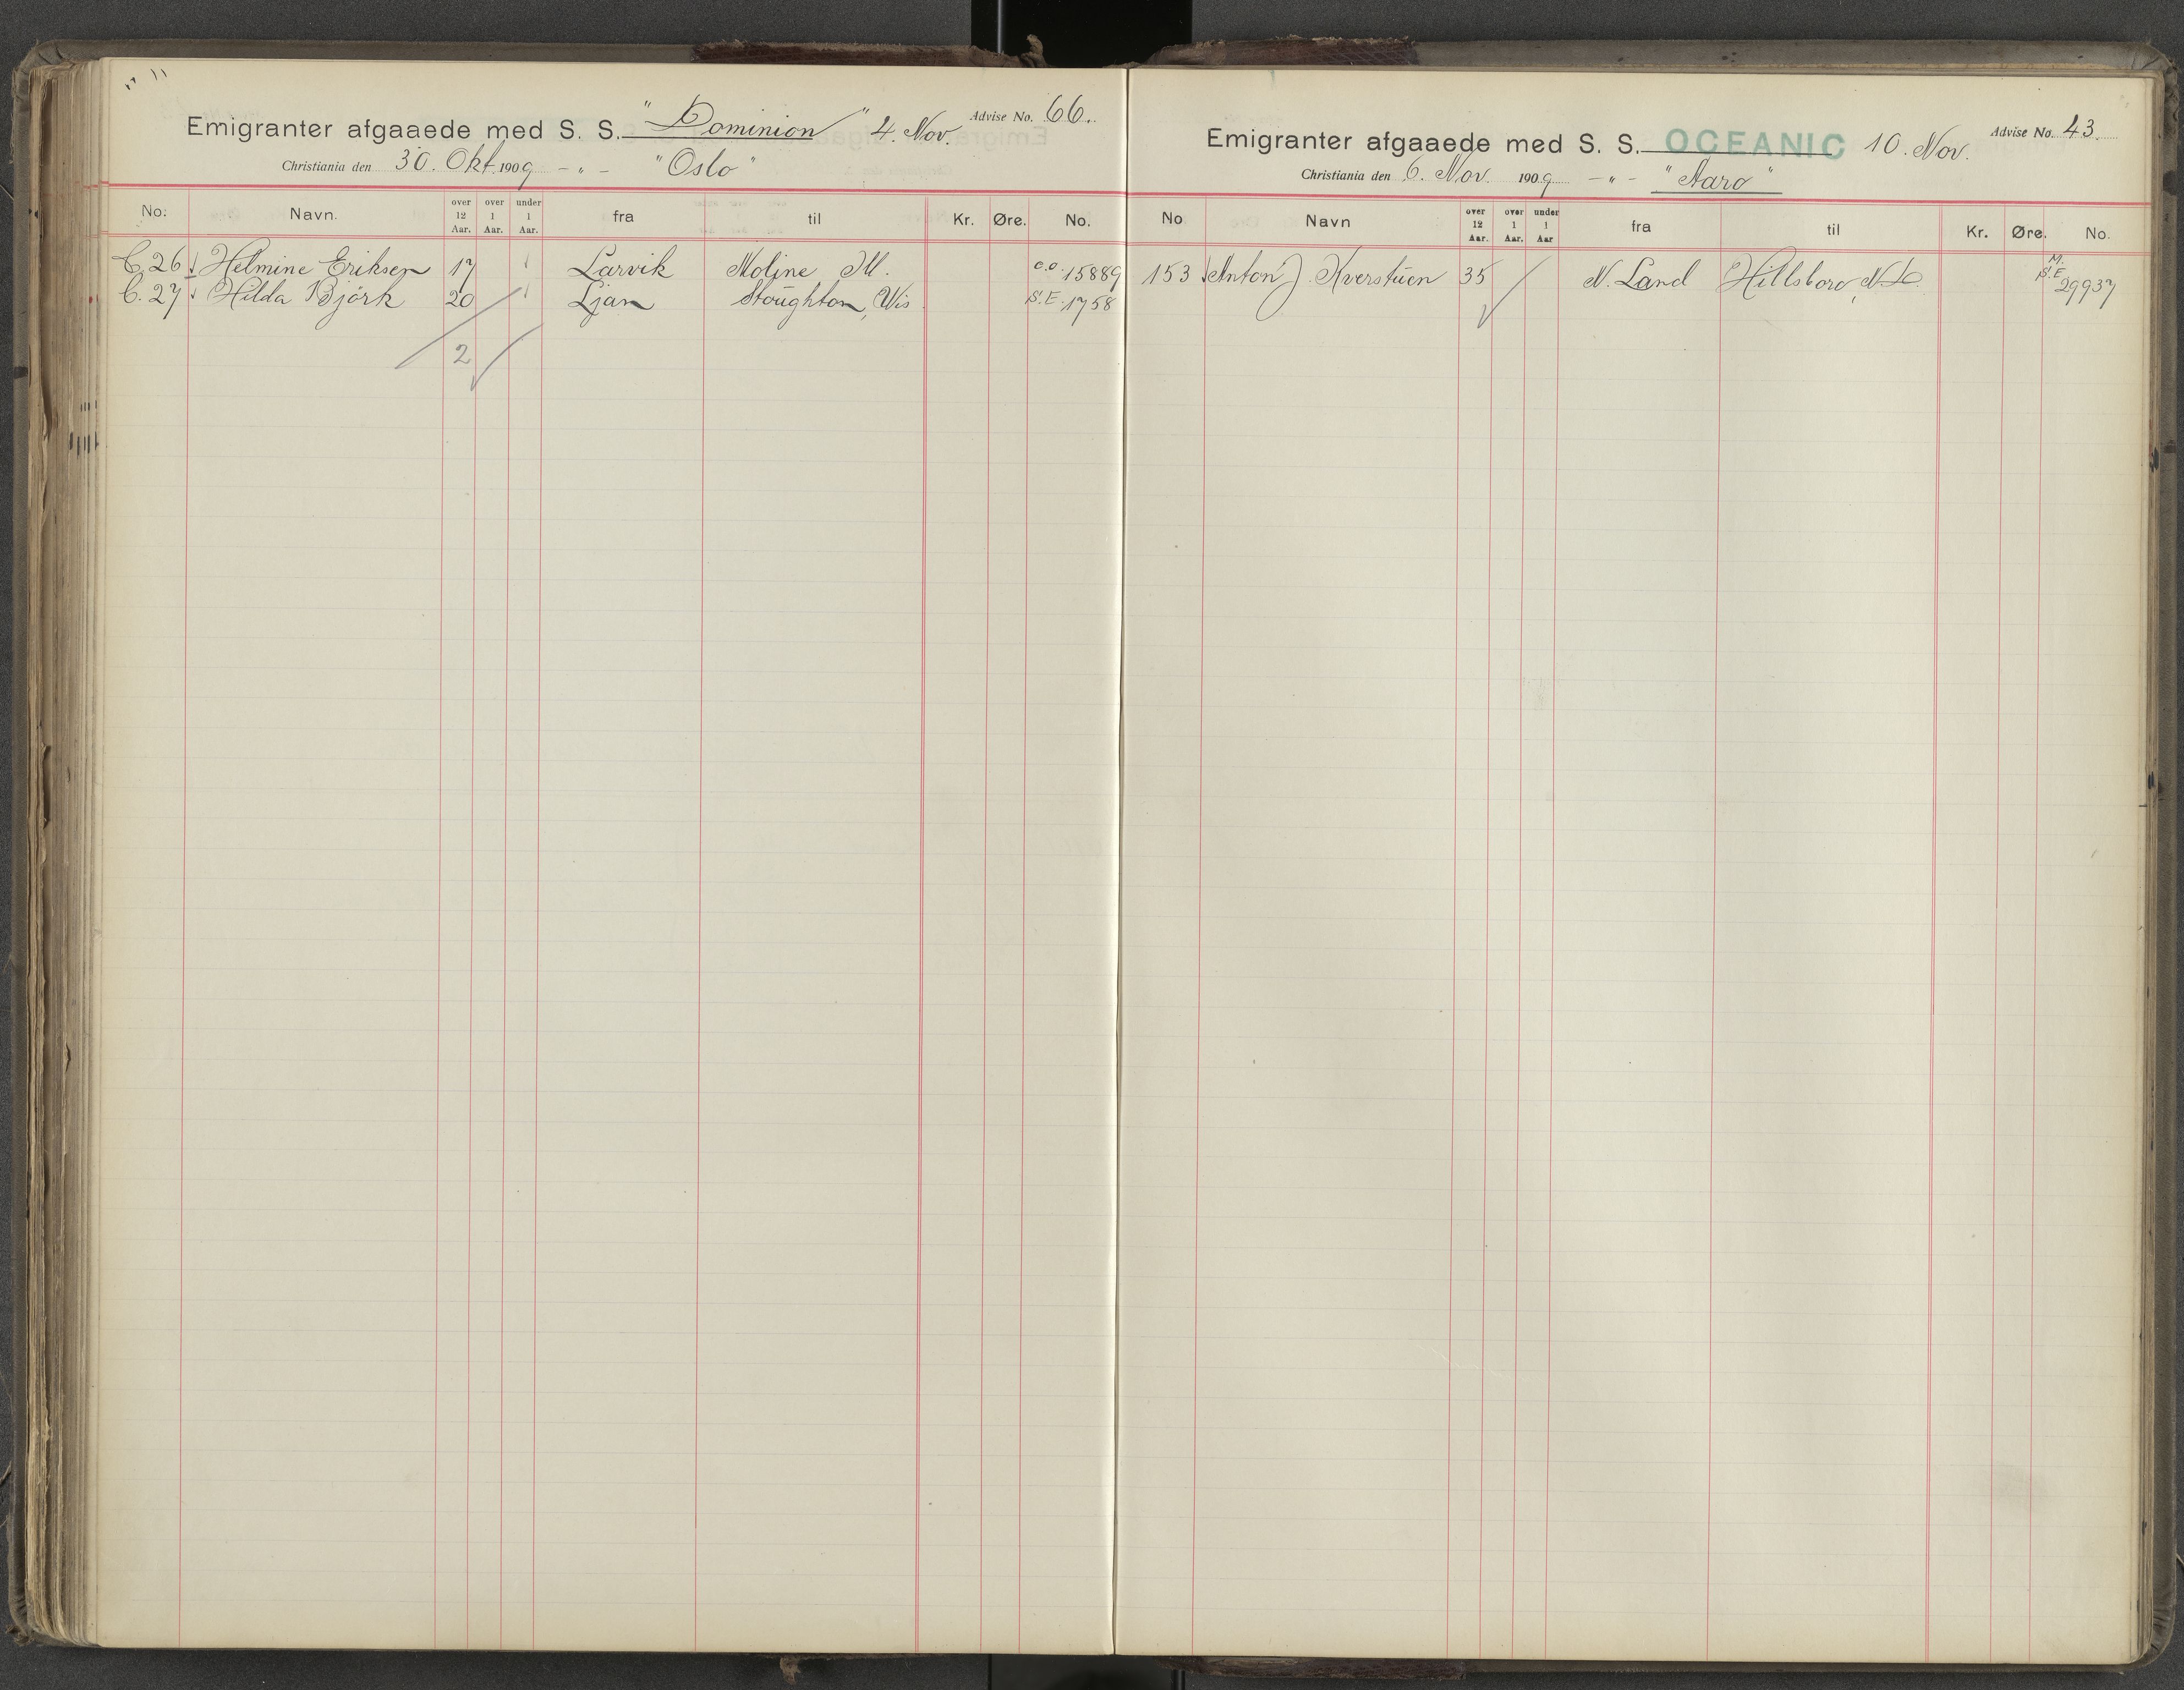 Emigranter afgaaede med S. S. "Dominion" 4. Nov. Advise No. 66.
Christiania den 30. Okt. 1909 - " - "Oslo"
No. Navn. over 12 Aar. over 1 Aar. under 1 Aar. fra til Kr. Øre. No.
C. 26 Helmine Eriksen 17 Larvik Moline Ill. c.o. 15889
C. 27 Hilda Björk 20 Ljan Stoughton, Wis. S.E. 1758
2
Emigranter afgaaede med S. S. OCEANIC 10. Nov. Advise No. 43.
Christiania den 6. Nov. 1909 - " - "Aaro"
No Navn over 12 Aar. over 1 Aar. under 1 Aar fra til Kr. Øre. No.
153 Anton J. Kverstuen 35 N. Land Hillsboro, N.D. M. S.E. 29937